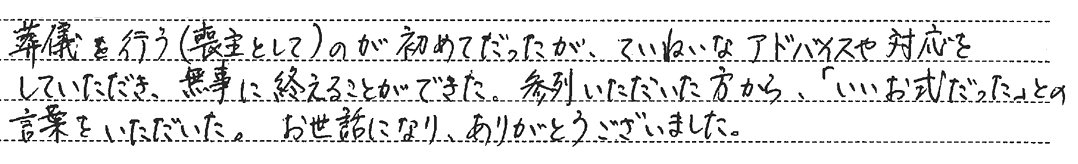 葬儀を行う(喪主として)のが初めてだったが、ていねいなアドバイスや対応を
していただき、無事に終えることができた。参列いただいた方から、「いいお式だった」との
言葉をいただいた。お世話になり、ありがとうございました。